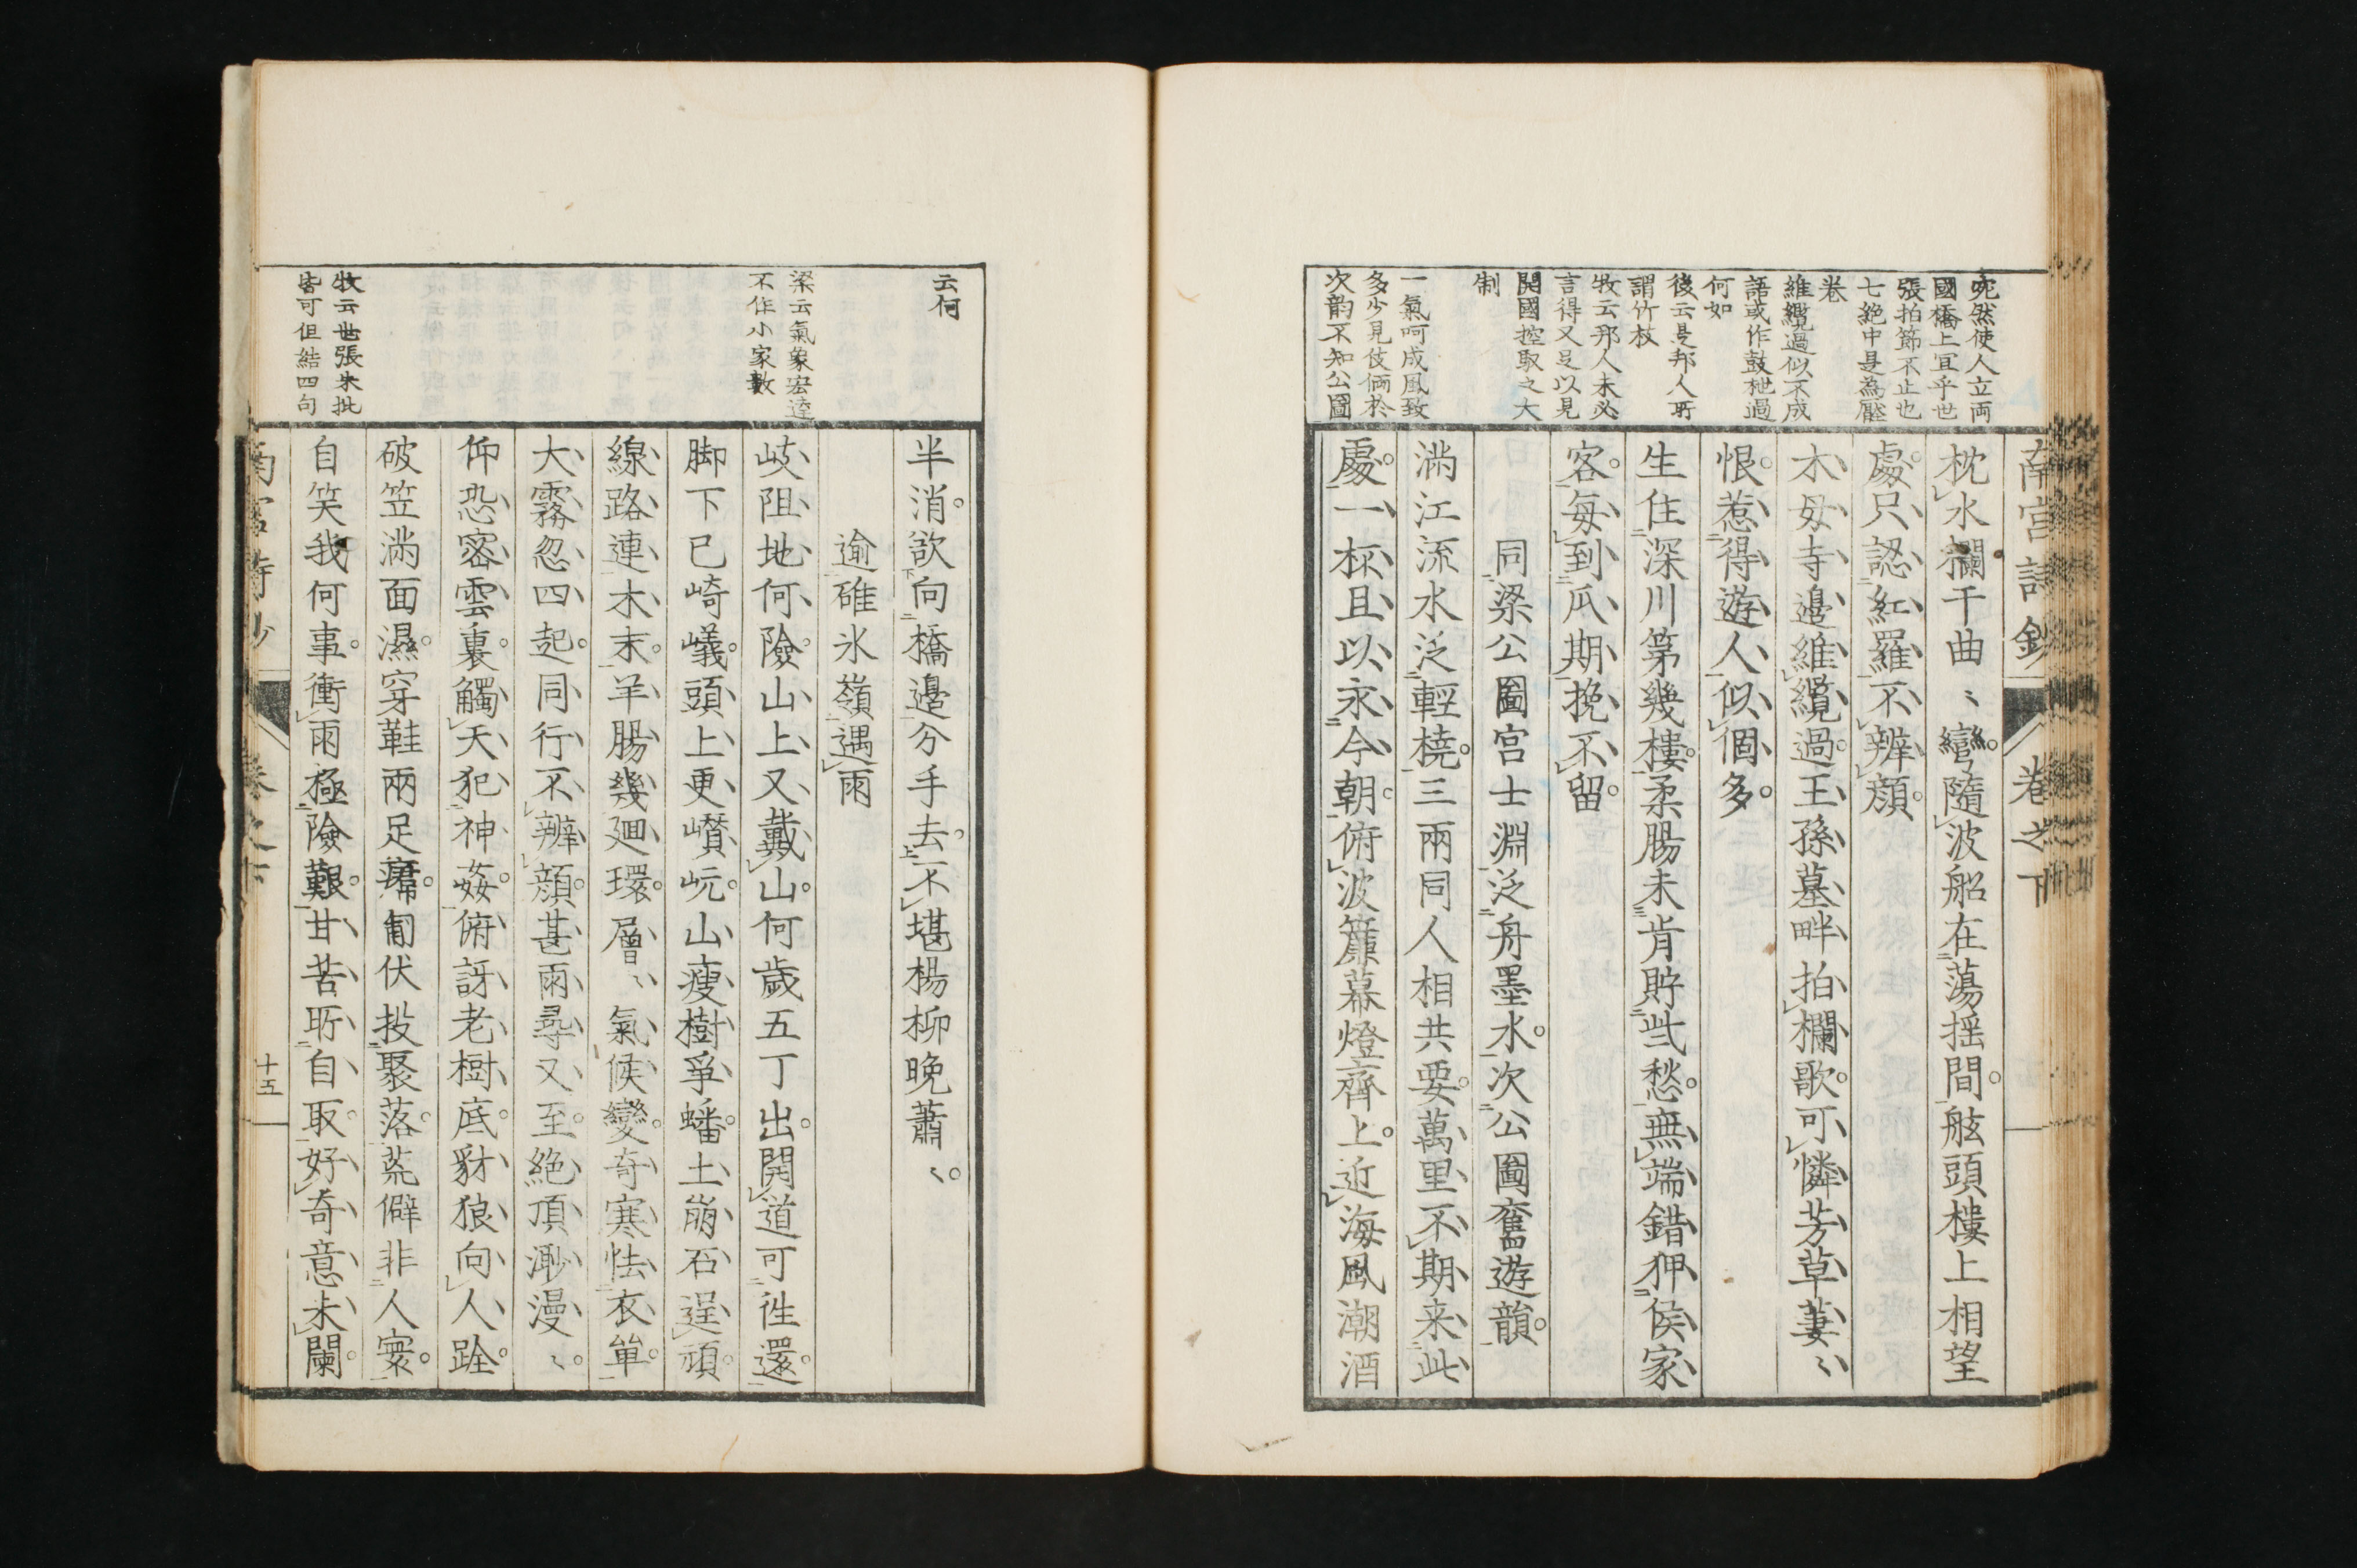 宛然使人立両
國橋上冝乎世
張拍節不止也
七絶中是為壓
卷
維纜過似不成
語或作鼓枻過
何如
後云是邦人所
謂竹枝
牧云邦人未必
言得又足以見
開國控馭之大
制
一氣呵成風致
多少見伎倆於
次韵不知公圖
南宮詩鈔 卷之下
枕水欄干曲〻彎隨波船在蕩揺間舷頭樓上相望
處只認紅羅不辨顔
木母寺邉維纜過王孫墓畔拍欄歌可憐芳草萋〻
恨惹得遊人似個多
生住深川第幾樓柔腸未肯貯此愁無端錯狎侯家
客每到瓜期挽不留
同梁公圖宮士淵泛舟墨水次公圖舊遊韻
満江流水泛輕橈三兩同人相共要萬里不期来此
處一杯且以永今朝俯波簾幕燈齊上近海風潮酒
云何
梁云氣象宏逹
不作小家數
牧云世張朱批
皆可但結四句
半消欲向橋邉分手去不堪楊柳晚蕭〻
逾碓氷嶺遇雨
岐阻地何險山上又戴山何歲五丁出開道可徃還
脚下已崎嶬頭上更巑岏山瘦樹爭蟠土崩石逞頑
線路連木末羊腸幾廻環層〻氣候變奇寒怯衣單
大霧忽四起同行不辨顔甚雨尋又至絶頂渺漫〻
仰恐密雲裏觸天犯神姦俯訝老樹底豺狼向人跧
破笠満面濕穿鞋兩足𤸷匍伏投聚落荒僻非人寰
自笑我何事衝雨極險艱甘苦所自取好奇意未闌
南宮詩鈔 卷之下 十五